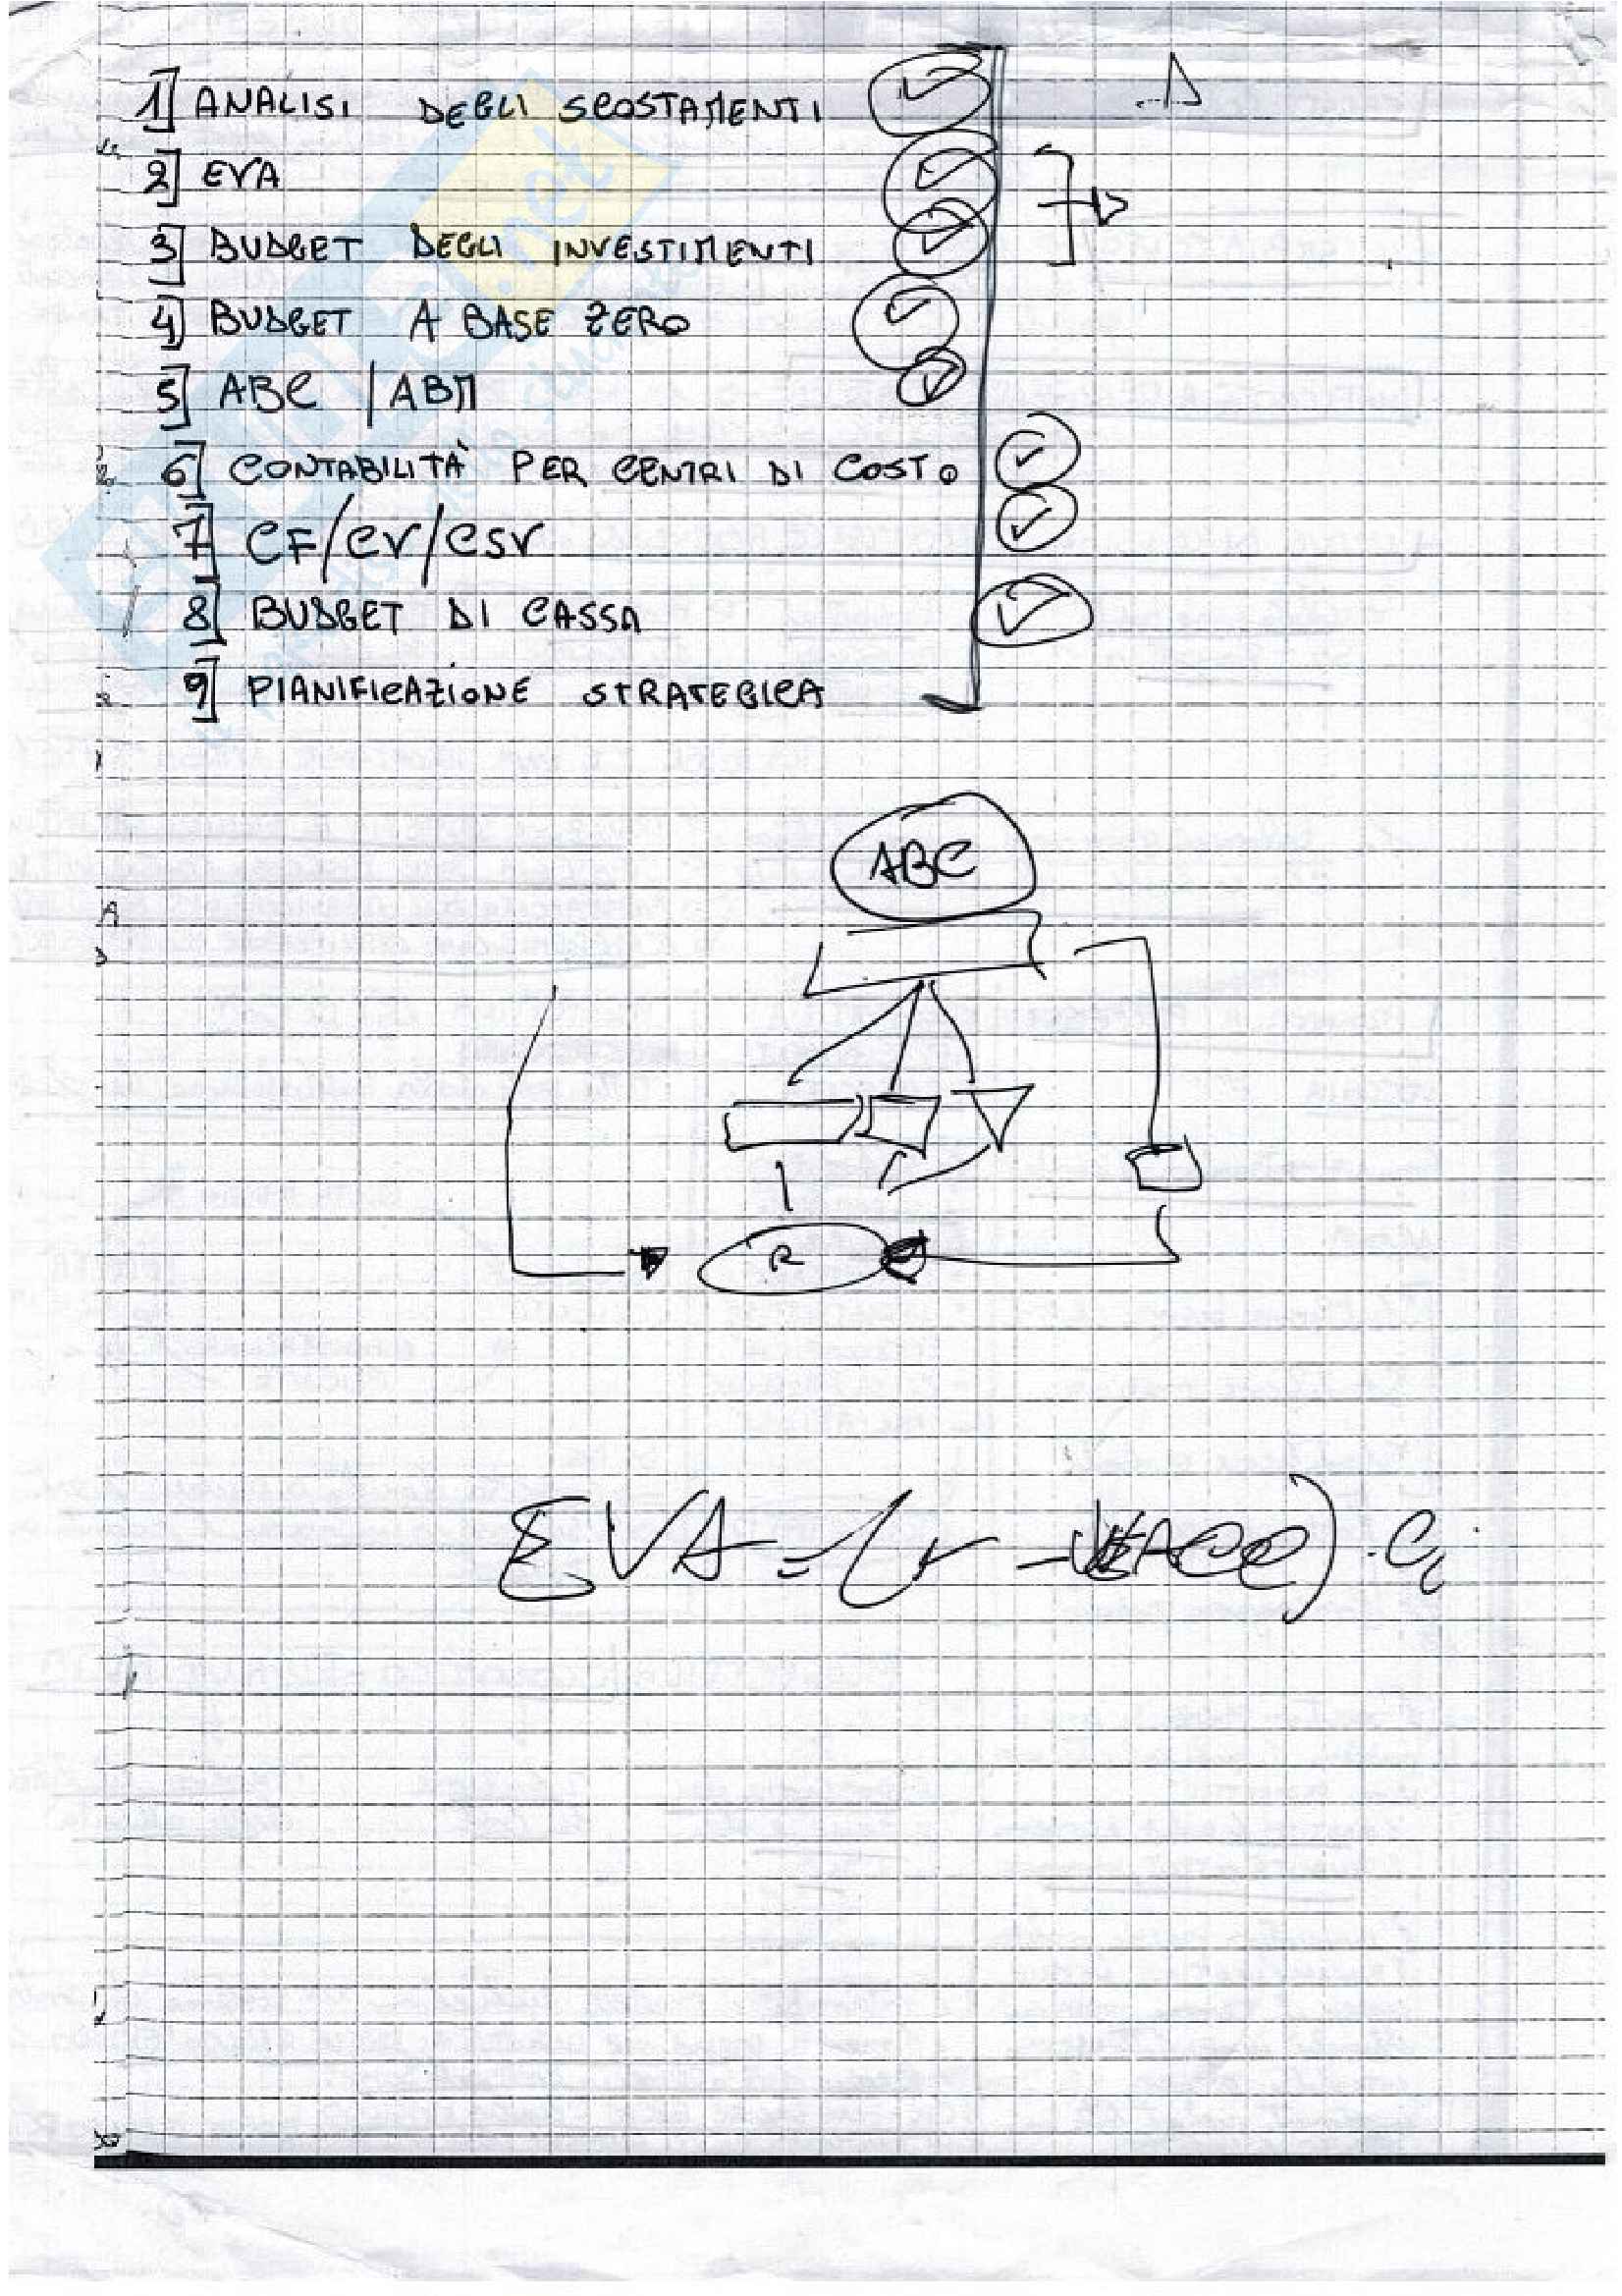 1] ANALISI DEGLI SCOSTAMENTI
2] EVA
3] BUDGET DEGLI INVESTIMENTI
4] BUDGET A BASE ZERO
5] ABC / ABM
6] CONTABILITÀ PER CENTRI DI COSTO
7] CF/CV/CSV
8] BUDGET DI CASSA
9] PIANIFICAZIONE STRATEGICA
ABC
R
EVA = (r - WACC) · Ci